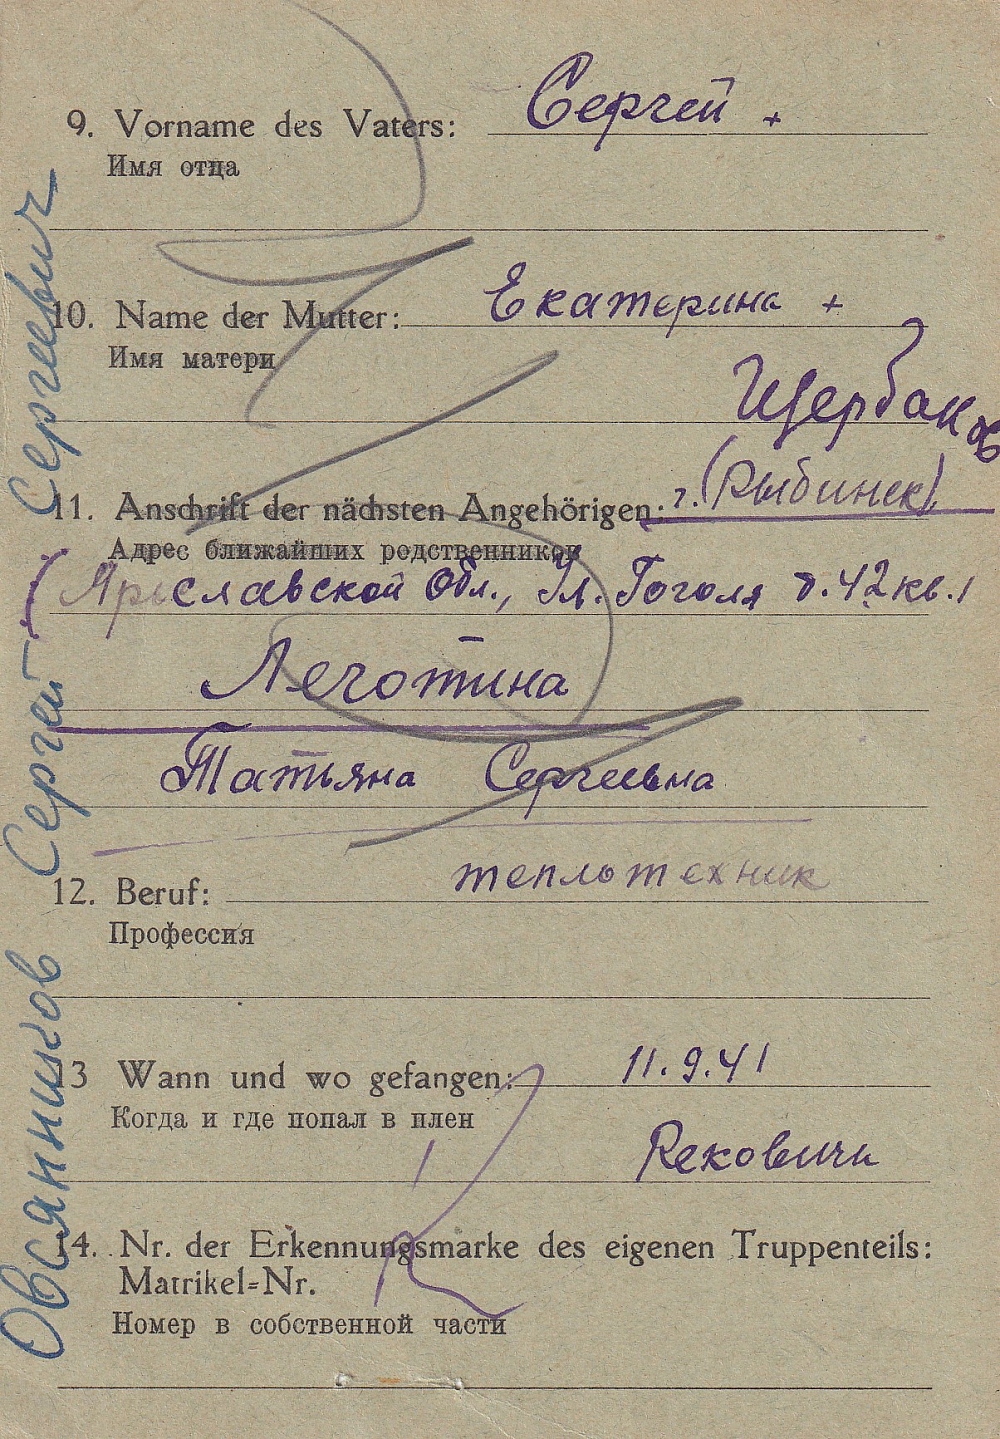 9. Vorname des Vaters: Сергей +
Имя отца
10. Name der Mutter: Екатерина +
Имя матери
Щербаков
11. Anschrift der nächsten Angehörigen: г. (Рыбинск)
Адрес ближайших родственников
(Ярославской Обл., Ул. Гоголя д. 42 кв. 1
Леготина
Татьяна Сергеевна
12. Beruf: теплотехник
Профессия
13 Wann und wo gefangen: 11.9.41
Когда и где попал в плен
Рековичи
14. Nr. der Erkennungsmarke des eigenen Truppenteils:
Matrikel=Nr.
Номер в собственной части
Овсянников Сергей Сергеевич